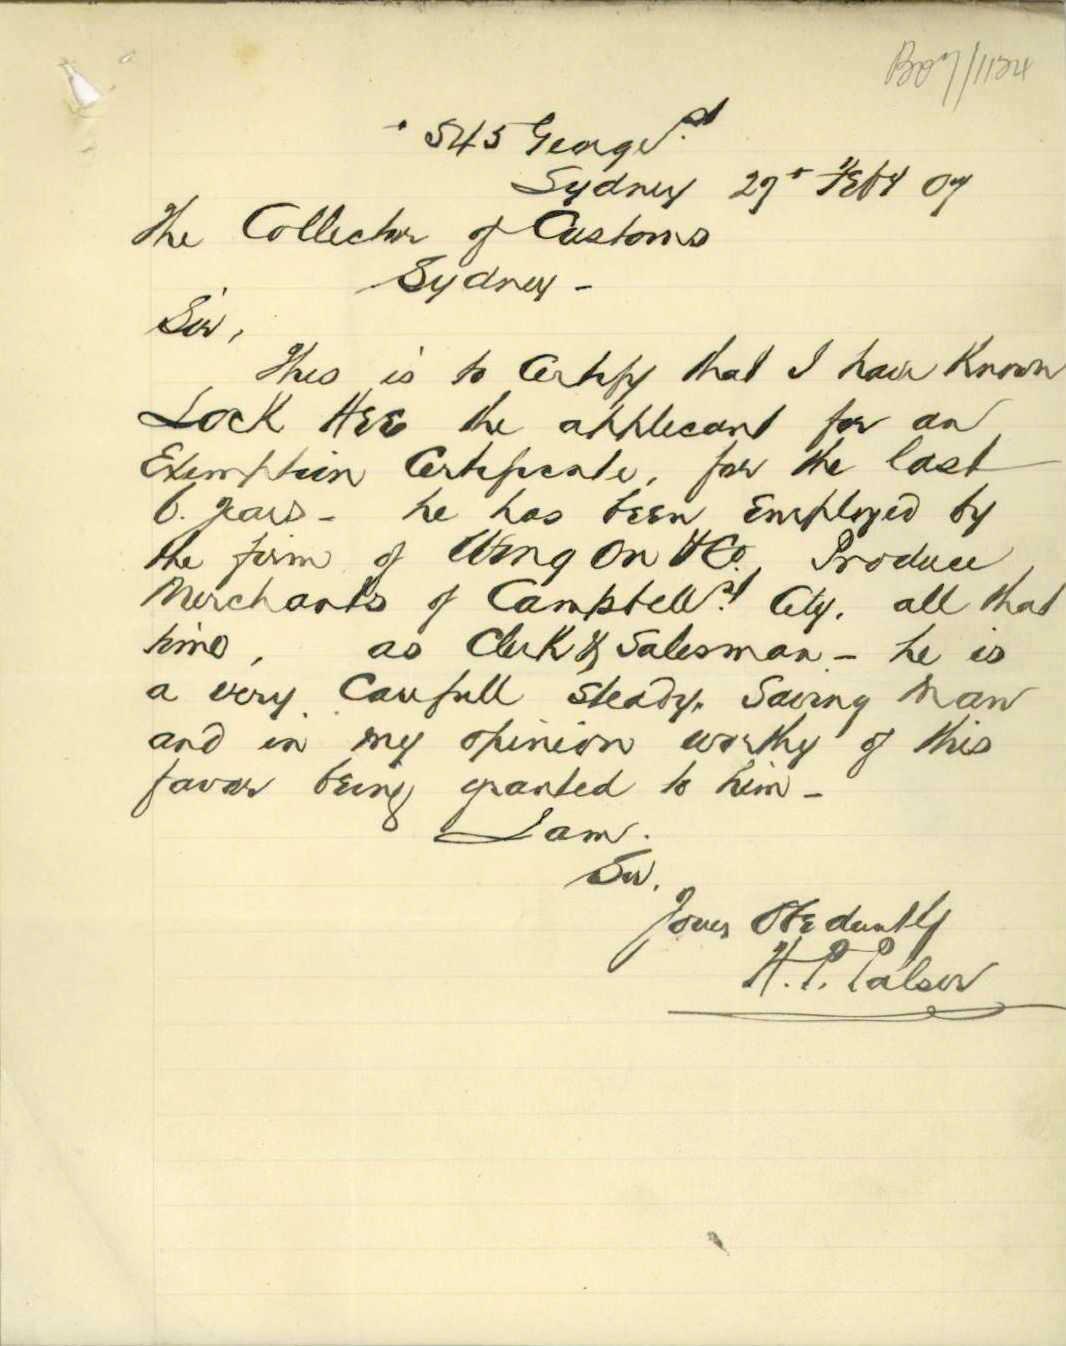 B07/1124
545 George St
Sydney 27th Feby 07
The Collector of Customs
Sydney -
Sir,
This is to Certify that I have Known
Lock Hee the applicant for an
Exemption Certificate, for the last
6. years - he has been Employed by
the firm of Wing On & Co. Produce
Merchants of Campbell St City. all that
time, as Clerk & Salesman - he is
a very Carefull steady, Saving Man
and in my opinion worthy of this
favor being granted to him -
I am.
Sir,
Yours Obediently
H. P. Palser